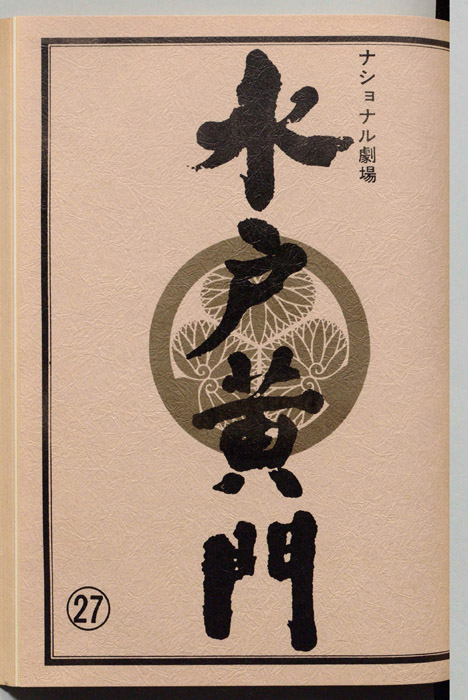 ナショナル劇場
水戸黄門
㉗